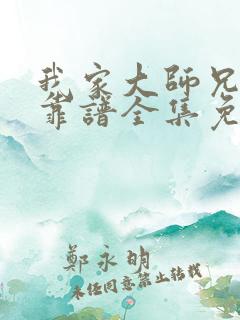 我家大師兄
靠譜全集免
鄭永明
未经同意禁止转载